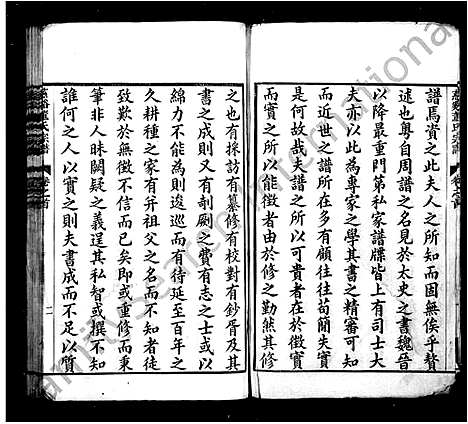 譜焉資之此夫人之所知而固無俟乎贅
述也粵自周譜之名見於太史之書魏晉
以降最重門第私家譜牒皆上有司士大
夫亦以此為專家之學其書之精審可知
而近世之譜所在多有顧往往苟簡失實
何也哉夫譜之所以可貴者在於徵實
實之所以能徵者由於修之勤然其修
之也有採訪有纂修有校對有鈔胥及其
書之成則又有剞劂之費有志之士或以
綿力不能為則逡巡而有待延至百年之
久耕種之家有弁祖父之名而不知者徒
致歎於無徵不信而已矣即或重修而秉
筆非人昧闕疑之義逞其私智或撰不知
誰何之人以實之則夫書成而不足以質
慈谿董氏宗譜
卷之首
Family Search International